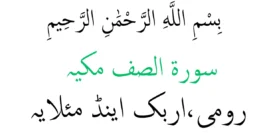 بِسْمِ اللَّهِ الرَّحْمَٰنِ الرَّحِيمِ
سورة الصف مکیہ
رومی،اربک اینڈ مئلایہ